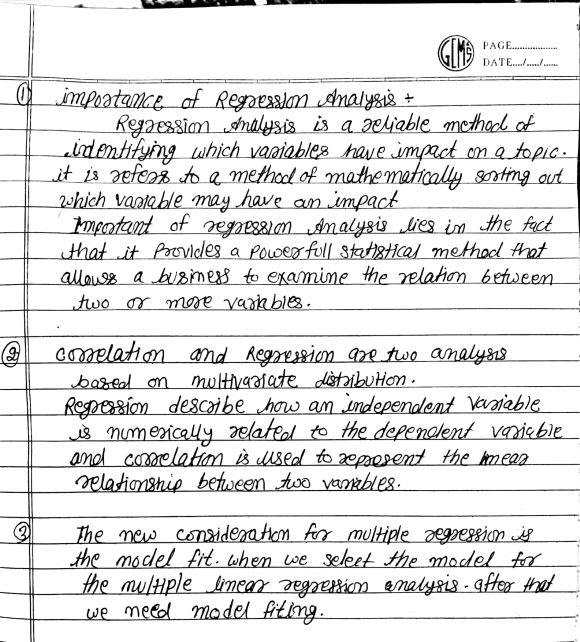 GEMS
PAGE..................
DATE..../...../......
① importance of Regression Analysis ÷
Regression Analysis is a reliable method of
indentifying which variables have impact on a topic.
it is refers to a method of mathematically sorting out
which variable may have an impact
Important of regression Analysis lies in the fact
that it provides a powerfull statistical method that
allows a business to examine the relation between
two or more variables.
② correlation and Regression are two analysis
based on multivariate distribution.
Regression describe how an independent variable
is numerically related to the dependent variable
and correlation is used to represent the linear
relationship between two variables.
③ The new consideration for multiple regression is
the model fit. when we select the model for
the multiple linear regression analysis. after that
we need model fiting.